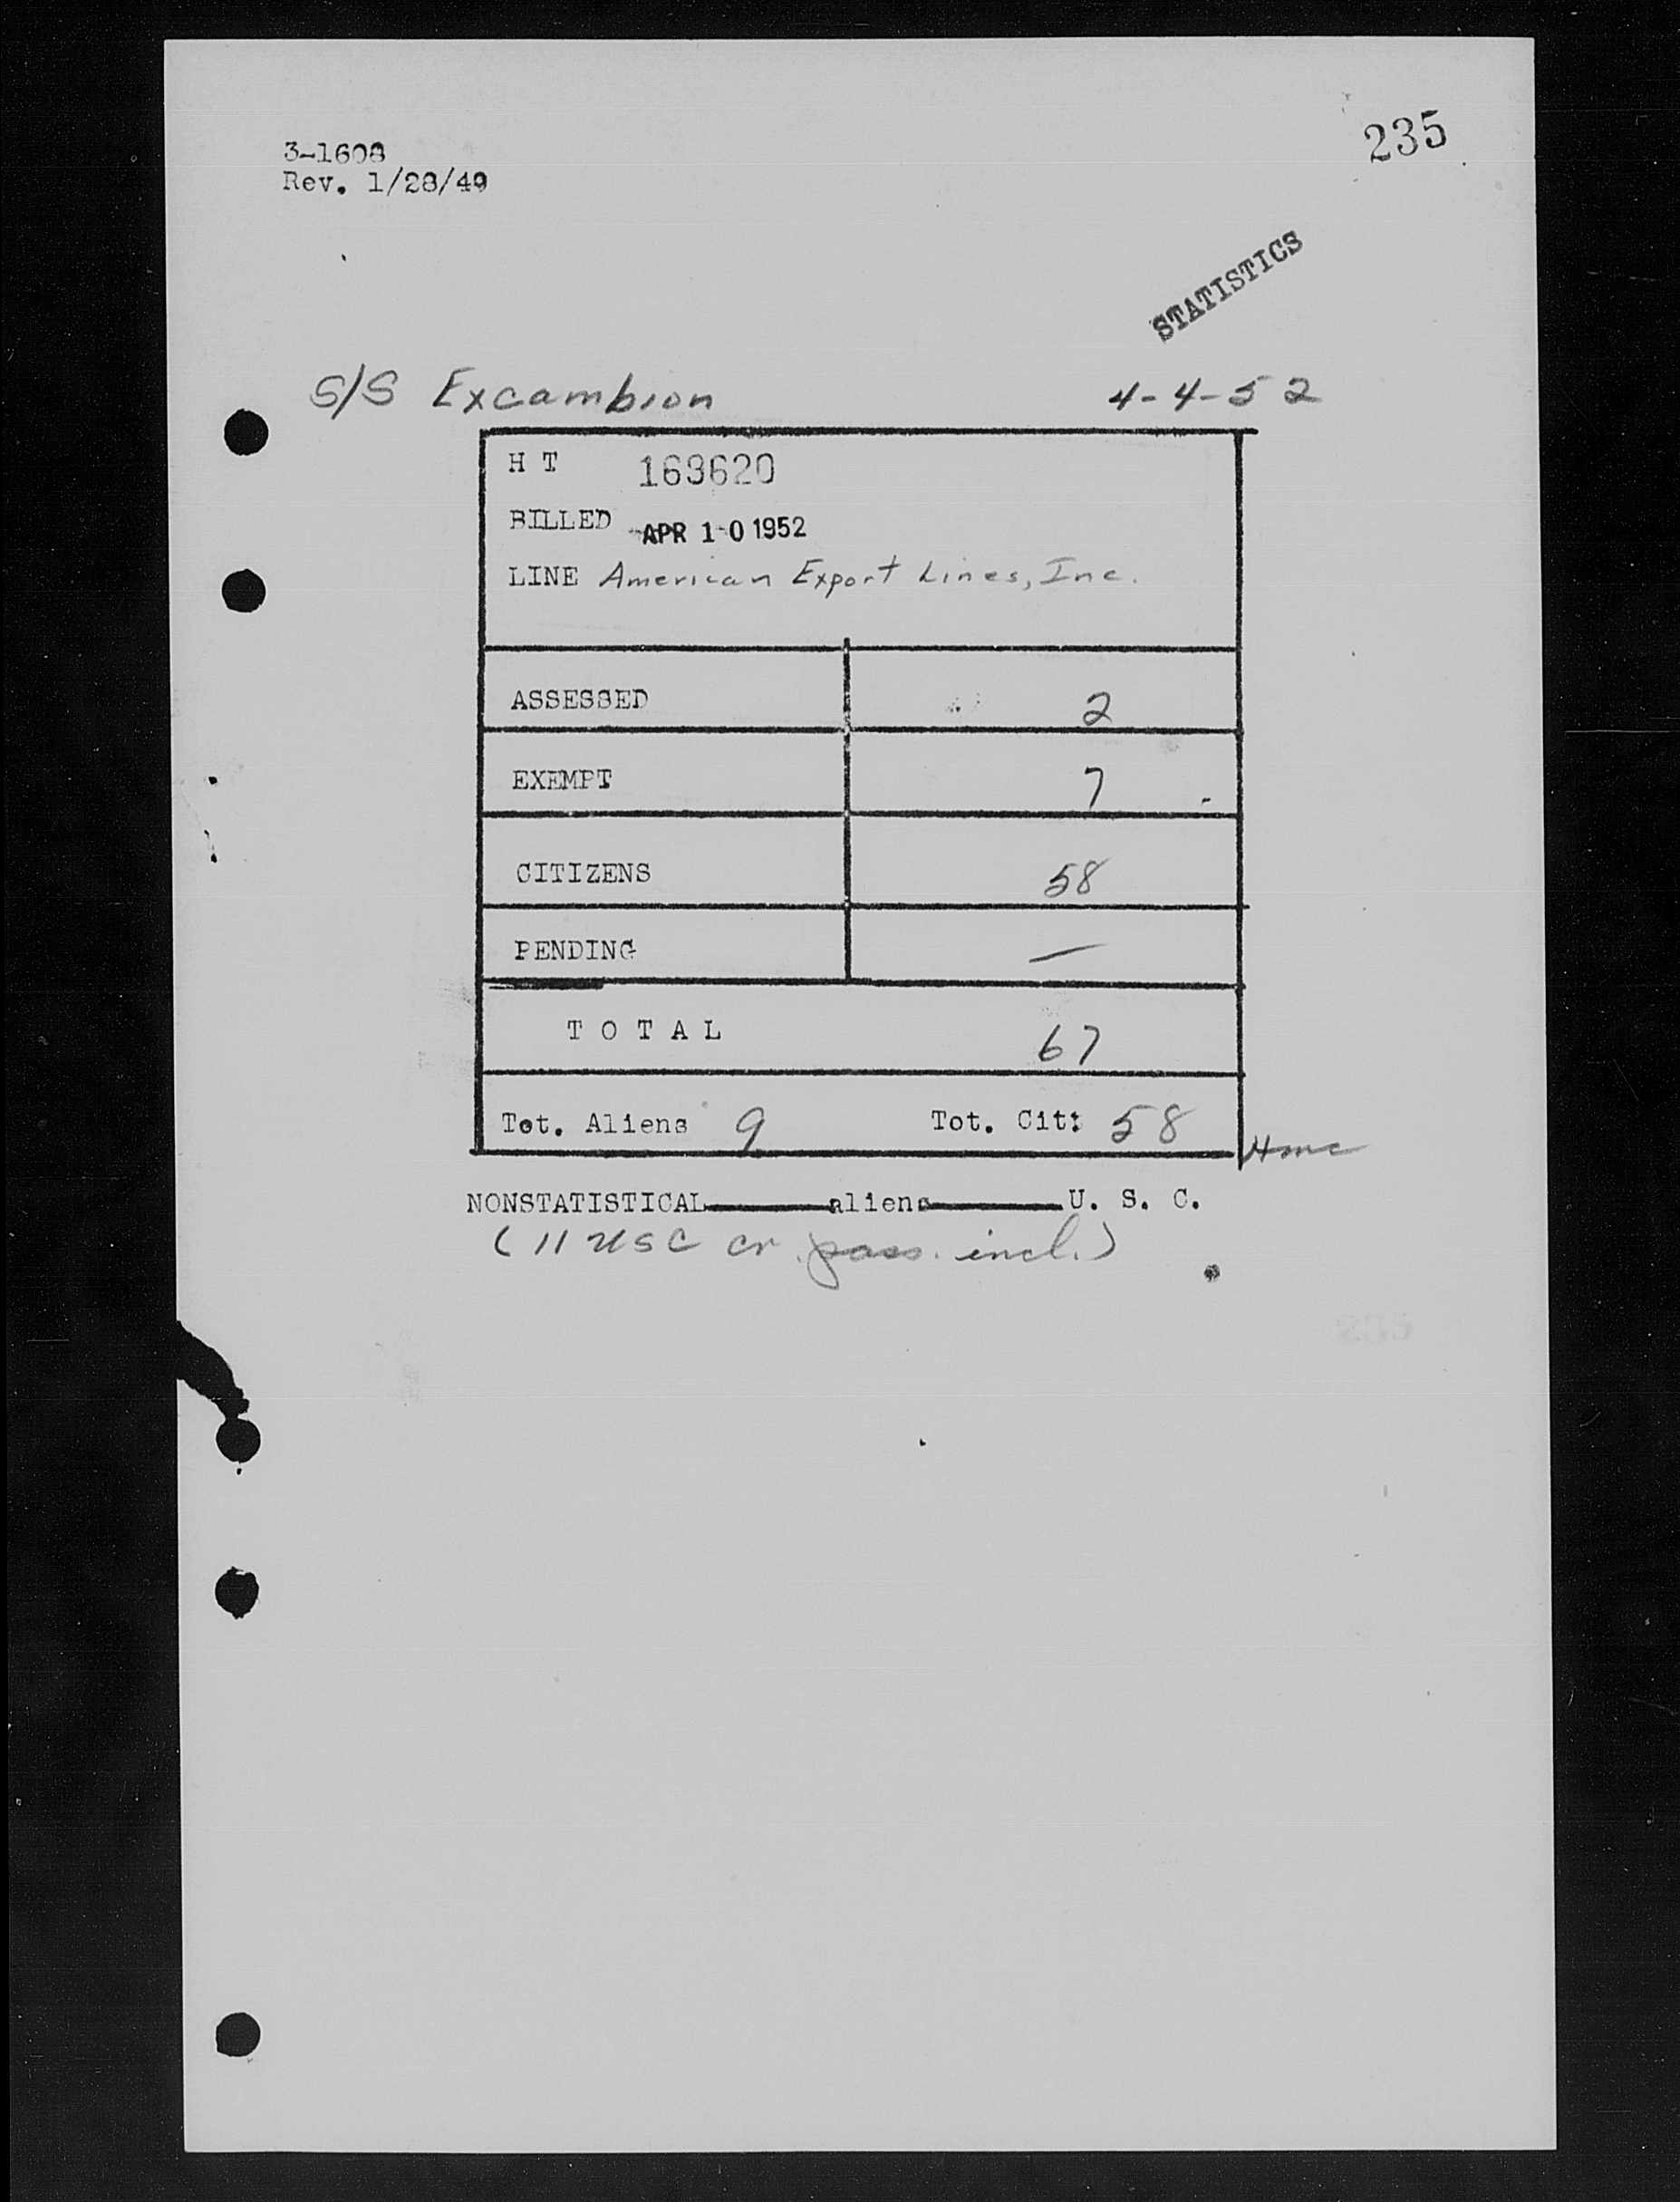 235
3-1608
Rev. 1/28/49
STATISTICS
S/S Excambion 4-4-52
H T 163620
BILLED APR 10 1952
LINE American Export Lines, Inc.
ASSESSED 2
EXEMPT 7
CITIZENS 58
PENDING —
T O T A L 67
Tot. Aliens 9 Tot. Cit: 58
NONSTATISTICAL aliens U. S. C.
(11 USC cr. pass. incl.)